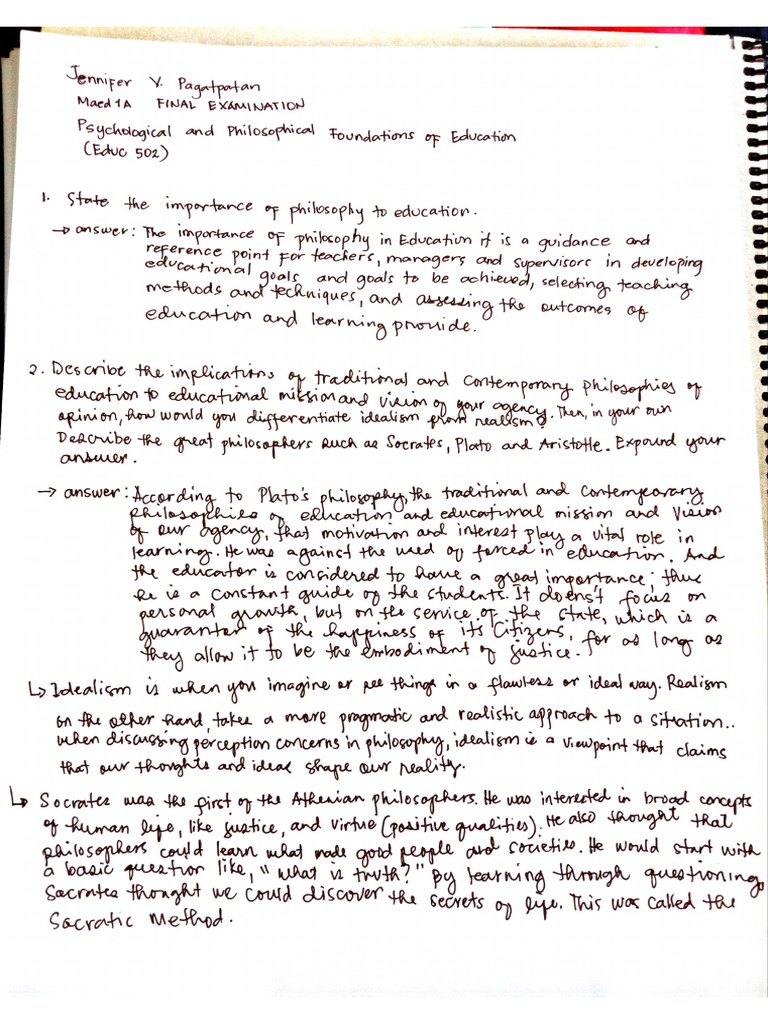 Jennifer Y. Pagatpatan
Maed 1A FINAL EXAMINATION
Psychological and Philosophical Foundations of Education
(Educ 502)
1. State the importance of philosophy to education.
→ answer: The importance of philosophy in Education it is a guidance and
reference point for teachers, managers and supervisors in developing
educational goals and goals to be achieved, selecting teaching
methods and techniques, and assessing the outcomes of
education and learning provide.
2. Describe the implications of traditional and contemporary philosophies of
education to educational mission and vision of your agency. Then, in your own
opinion, how would you differentiate idealism from realism?
Describe the great philosophers such as Socrates, Plato and Aristotle. Expound your
answer.
→ answer: According to Plato's philosophy, the traditional and contemporary
philosophies of education and educational mission and vision
of our agency, that motivation and interest play a vital role in
learning. He was against the used of forced in education. And
the educator is considered to have a great importance; thus
he is a constant guide of the students. It doens't focus on
personal growth, but on the service of the state, which is a
guarantor of the happiness of its citizens, for as long as
they allow it to be the embodiment of justice.
↳ Idealism is when you imagine or see things in a flawless or ideal way. Realism
on the other hand, takes a more pragmatic and realistic approach to a sitration..
when discussing perception concerns in philosophy, idealism is a viewpoint that claims
that our thoughts and ideas shape our reality.
↳ Socrates was the first of the Athenian philosophers. He was interested in broad concepts
of human life, like justice, and virtue (positive qualities). He also thought that
philosophers could learn what made good people and societies. He would start with
a basic question like, "what is truth?" By learning through questioning,
Socrates thought we could discover the secrets of life. This was called the
Socratic Method.